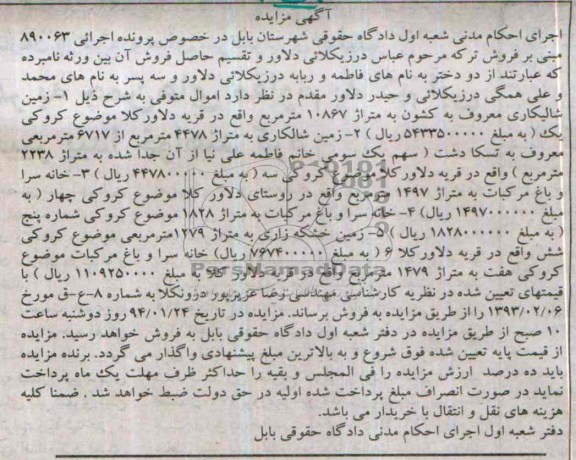 آگهی مزایده
اجرای احکام مدنی شعبه اول دادگاه حقوقی شهرستان بابل در خصوص پرونده اجرائی ۸۹۰۰۶۳
مبنی بر فروش ترکه مرحوم عباس درزیکلائی دلاور و تقسیم حاصل فروش آن بین ورثه نامبرده
که عبارتند از دو دختر به نام های فاطمه و ربابه درزیکلائی دلاور و سه پسر به نام های محمد
و علی همگی درزیکلائی و حیدر دلاور مقدم در نظر دارد اموال متوفی به شرح ذیل ۱- زمین
شالیکاری معروف به کشون به متراژ ۱۰۸۶۷ مترمربع واقع در قریه دلاورکلا موضوع کروکی
یک ( به مبلغ ۵۴۳۳۵۰۰۰۰۰ ریال ) ۲- زمین شالکاری به متراژ ۴۴۷۸ مترمربع از ۶۷۱۷ مترمربعی
معروف به تسکا دشت ( سهم یک سومی خانم فاطمه علی نیا از آن جدا شده به متراژ ۲۲۳۸
مترمربع ) واقع در قریه دلاورکلا موضوع کروکی سه ( به مبلغ ۴۴۷۸۰۰۰۰۰۰ ریال ) ۳- خانه سرا
و باغ مرکبات به متراژ ۱۴۹۷ مترمربع واقع در روستای دلاور کلا موضوع کروکی چهار ( به
مبلغ ۱۴۹۷۰۰۰۰۰۰ ریال) ۴- خانه سرا و باغ مرکبات به متراژ ۱۸۲۸ موضوع کروکی شماره پنج
( به مبلغ ۱۸۲۸۰۰۰۰۰۰ ریال ) ۵- زمین خشکه زاری به متراژ ۱۲۷۹ مترمربعی موضوع کروکی
شش واقع در قریه دلاورکلا ۶ ( به مبلغ ۷۶۷۴۰۰۰۰۰ ریال) خانه سرا و باغ مرکبات موضوع
کروکی هفت به متراژ ۱۴۷۹ مترمربع واقع در قریه دلاور کلا به مبلغ ۱۱۰۹۲۵۰۰۰۰ ریال ) با
قیمتهای تعیین شده در نظریه کارشناسی مهندس رضا عزیزپور درونکلا به شماره ۸-ع-ق مورخ
۱۳۹۳/۰۲/۰۶ را از طریق مزایده به فروش برساند. مزایده در تاریخ ۹۴/۰۱/۲۴ روز دوشنبه ساعت
۱۰ صبح از طریق مزایده در دفتر شعبه اول دادگاه حقوقی بابل به فروش خواهد رسید. مزایده
از قیمت پایه تعیین شده فوق شروع و به بالاترین مبلغ پیشنهادی واگذار می گردد. برنده مزایده
باید ده درصد ارزش مزایده را فی المجلس و بقیه را حداکثر ظرف مهلت یک ماه پرداخت
نماید در صورت انصراف مبلغ پرداخت شده اولیه در حق دولت ضبط خواهد شد . ضمنا کلیه
هزینه های نقل و انتقال با خریدار می باشد.
دفتر شعبه اول اجرای احکام مدنی دادگاه حقوقی بابل